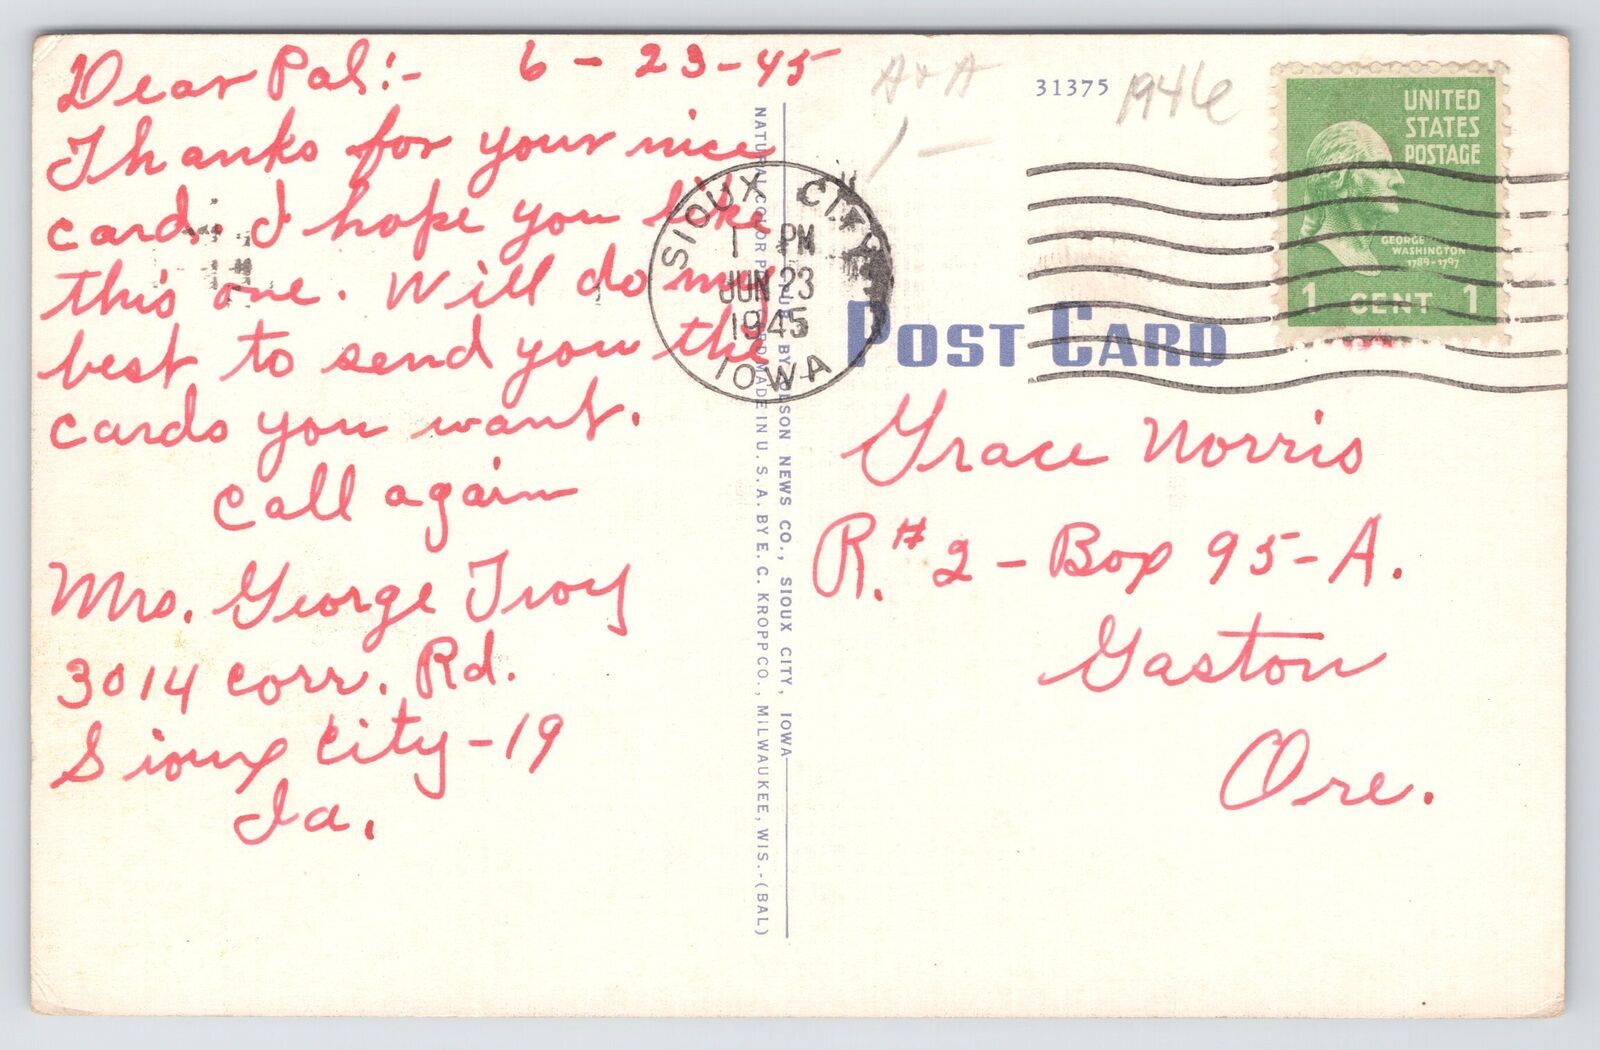 Dear Pal:- 6-23-45
Thanks for your nice
card. I hope you like
this one. Will do my
best to send you the
cards you want.
Call again
Mrs. George Troy
3014 Corr. Rd.
Sioux City-19
Ia.
NATURAL COLOR POST CARD MADE IN U.S.A. BY E. C. KROPP CO., MILWAUKEE, WIS.-(BAL)
PUB. BY OLSON NEWS CO., SIOUX CITY, IOWA
A+A
1-
31375
1946
SIOUX CITY
1 PM
JUN 23
1945
IOWA
UNITED
STATES
POSTAGE
GEORGE
WASHINGTON
1789-1797
1 CENT 1
POST CARD
Grace Norris
R.# 2-Box 95-A.
Gaston
Ore.